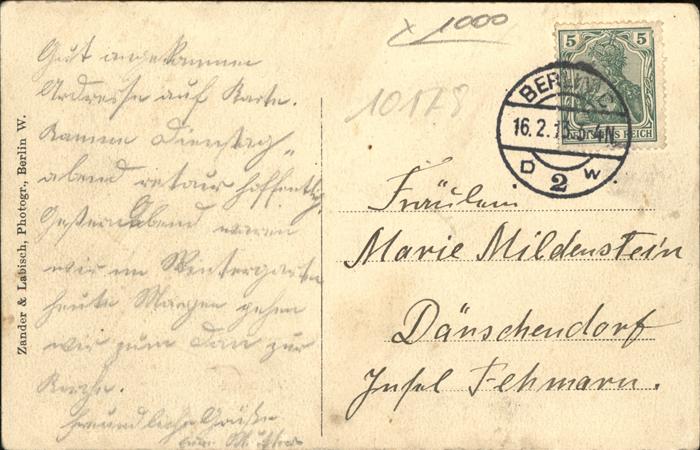 x 1000
10178
Gut angekommen
Adresse auf Karte.
Kommen Dienstag
abend retour hoffentlich
Gestern Abend waren
wir im Wintergarten
heute Morgen gehen
wir zum Dom zur
Kirche.
freundliche Grüße
Zander & Labisch, Photogr., Berlin W.
5 5
DEUTSCHES REICH
BERLIN C
16.2.13. 3-4N
2
D W.
Fräulein
Marie Mildenstein
Dänschendorf
Insel Fehmarn.